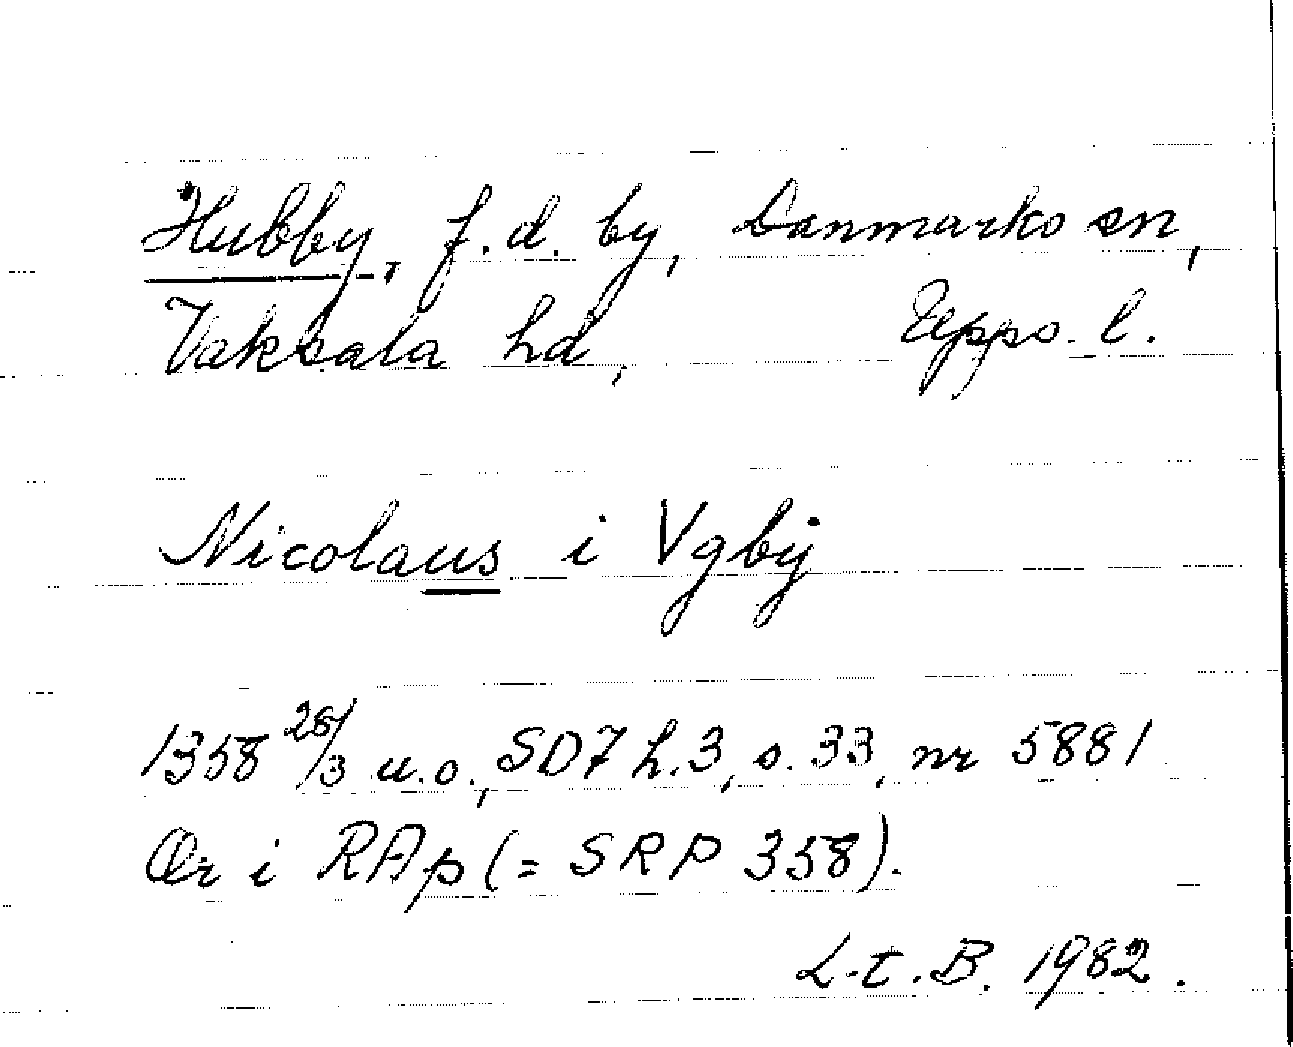 Hubby, f.d. by, Danmarks sn,
Vaksala hd, Upps. l.
Nicolaus i Vgbÿ
1358 28/3 u.o., SD7 h.3, s. 33, nr 5881
Or i RAp (= SRP 358).
L-t. B. 1982.